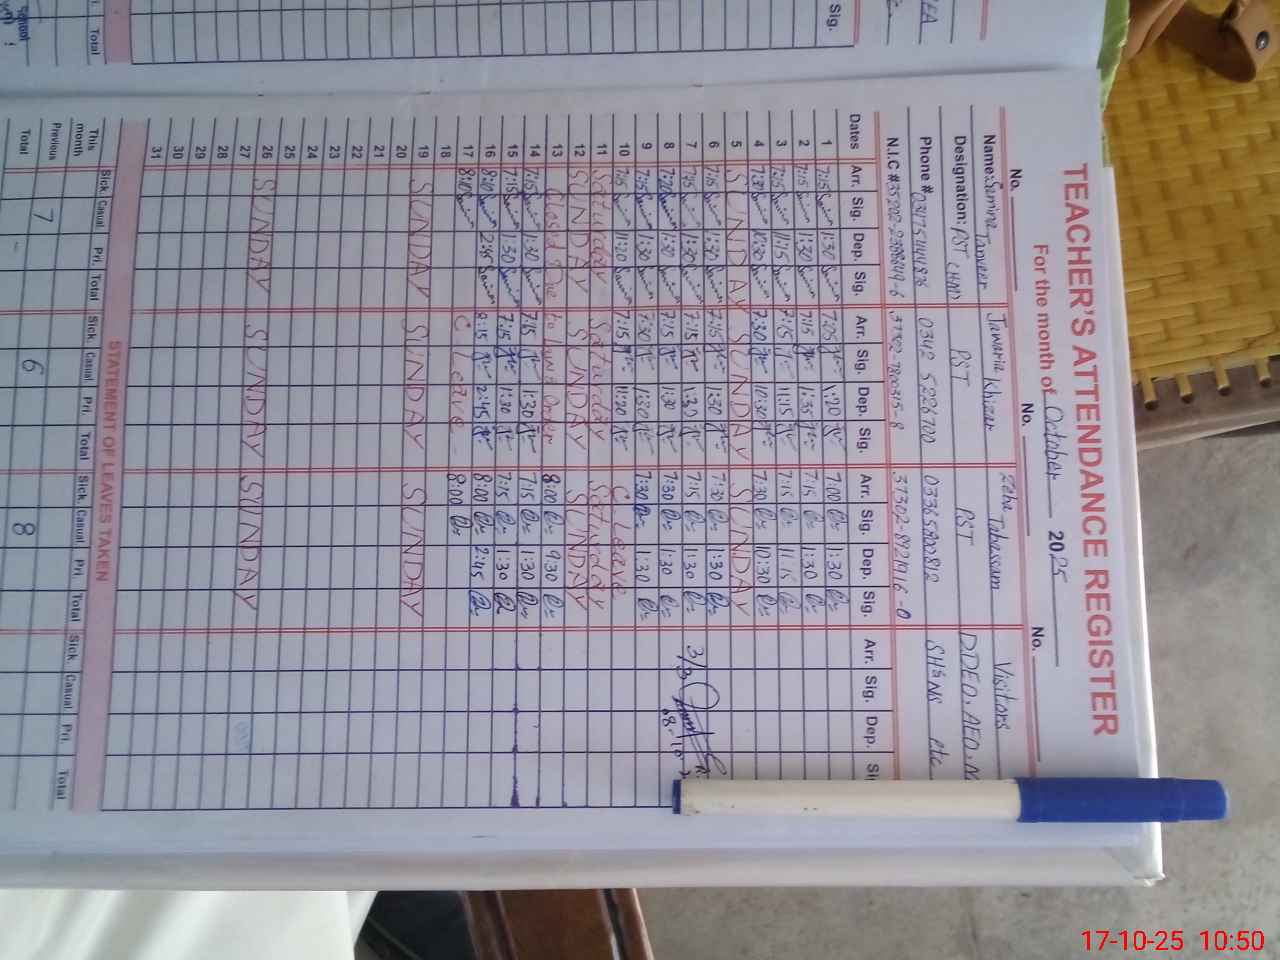 TEACHER'S ATTENDANCE REGISTER
For the month of October 2025
No. No. No.
Name: Samina Tanveer Jawaria Khizar Zeba Tabassam Visitors
Designation: PST (HM) PST PST DDEO, AEO,
Phone # 03475444836 0342 5226700 03365800812 etc
N.I.C #
Dates Arr. Sig. Dep. Sig. Arr. Sig. Dep. Sig. Arr. Sig. Dep. Sig. Arr. Sig. Dep.
1 7:15 1:30 7:05 1:20 7:00 1:30
2 7:15 1:30 7:15 1:35 7:15 1:30
3 7:15 11:15 7:15 11:15 7:15 11:15
4 7:30 10:30 7:30 10:30 7:30 10:30
5 SUNDAY SUNDAY SUNDAY
6 7:15 1:30 7:15 1:30 7:30 1:30
7 7:15 1:30 7:15 1:30 7:15 1:30 3/3
8 7:20 1:30 7:15 1:30 7:30 1:30
9 7:15 1:30 7:30 1:30 7:30 1:30
10 7:15 11:20 7:15 11:20 C Leave
11 Saturday Saturday Saturday
12 SUNDAY SUNDAY SUNDAY
13 Closed Due to Law & Order 8:00 9:30
14 7:15 1:30 7:15 1:30 7:15 1:30
15 7:15 1:30 7:15 1:30 7:15 1:30
16 8:10 2:45 8:15 2:45 8:00 2:45
17 8:10 C Leave 8:00
18
19 SUNDAY SUNDAY SUNDAY
20
21
22
23
24
25
26 SUNDAY SUNDAY SUNDAY
27
28
29
30
31
STATEMENT OF LEAVES TAKEN
This month Sick Casual Pri. Total Sick. Casual Pri. Total Sick. Casual Pri. Total Sick. Casual Pri. Total
Previous 7 6 8
Total
17-10-25 10:50